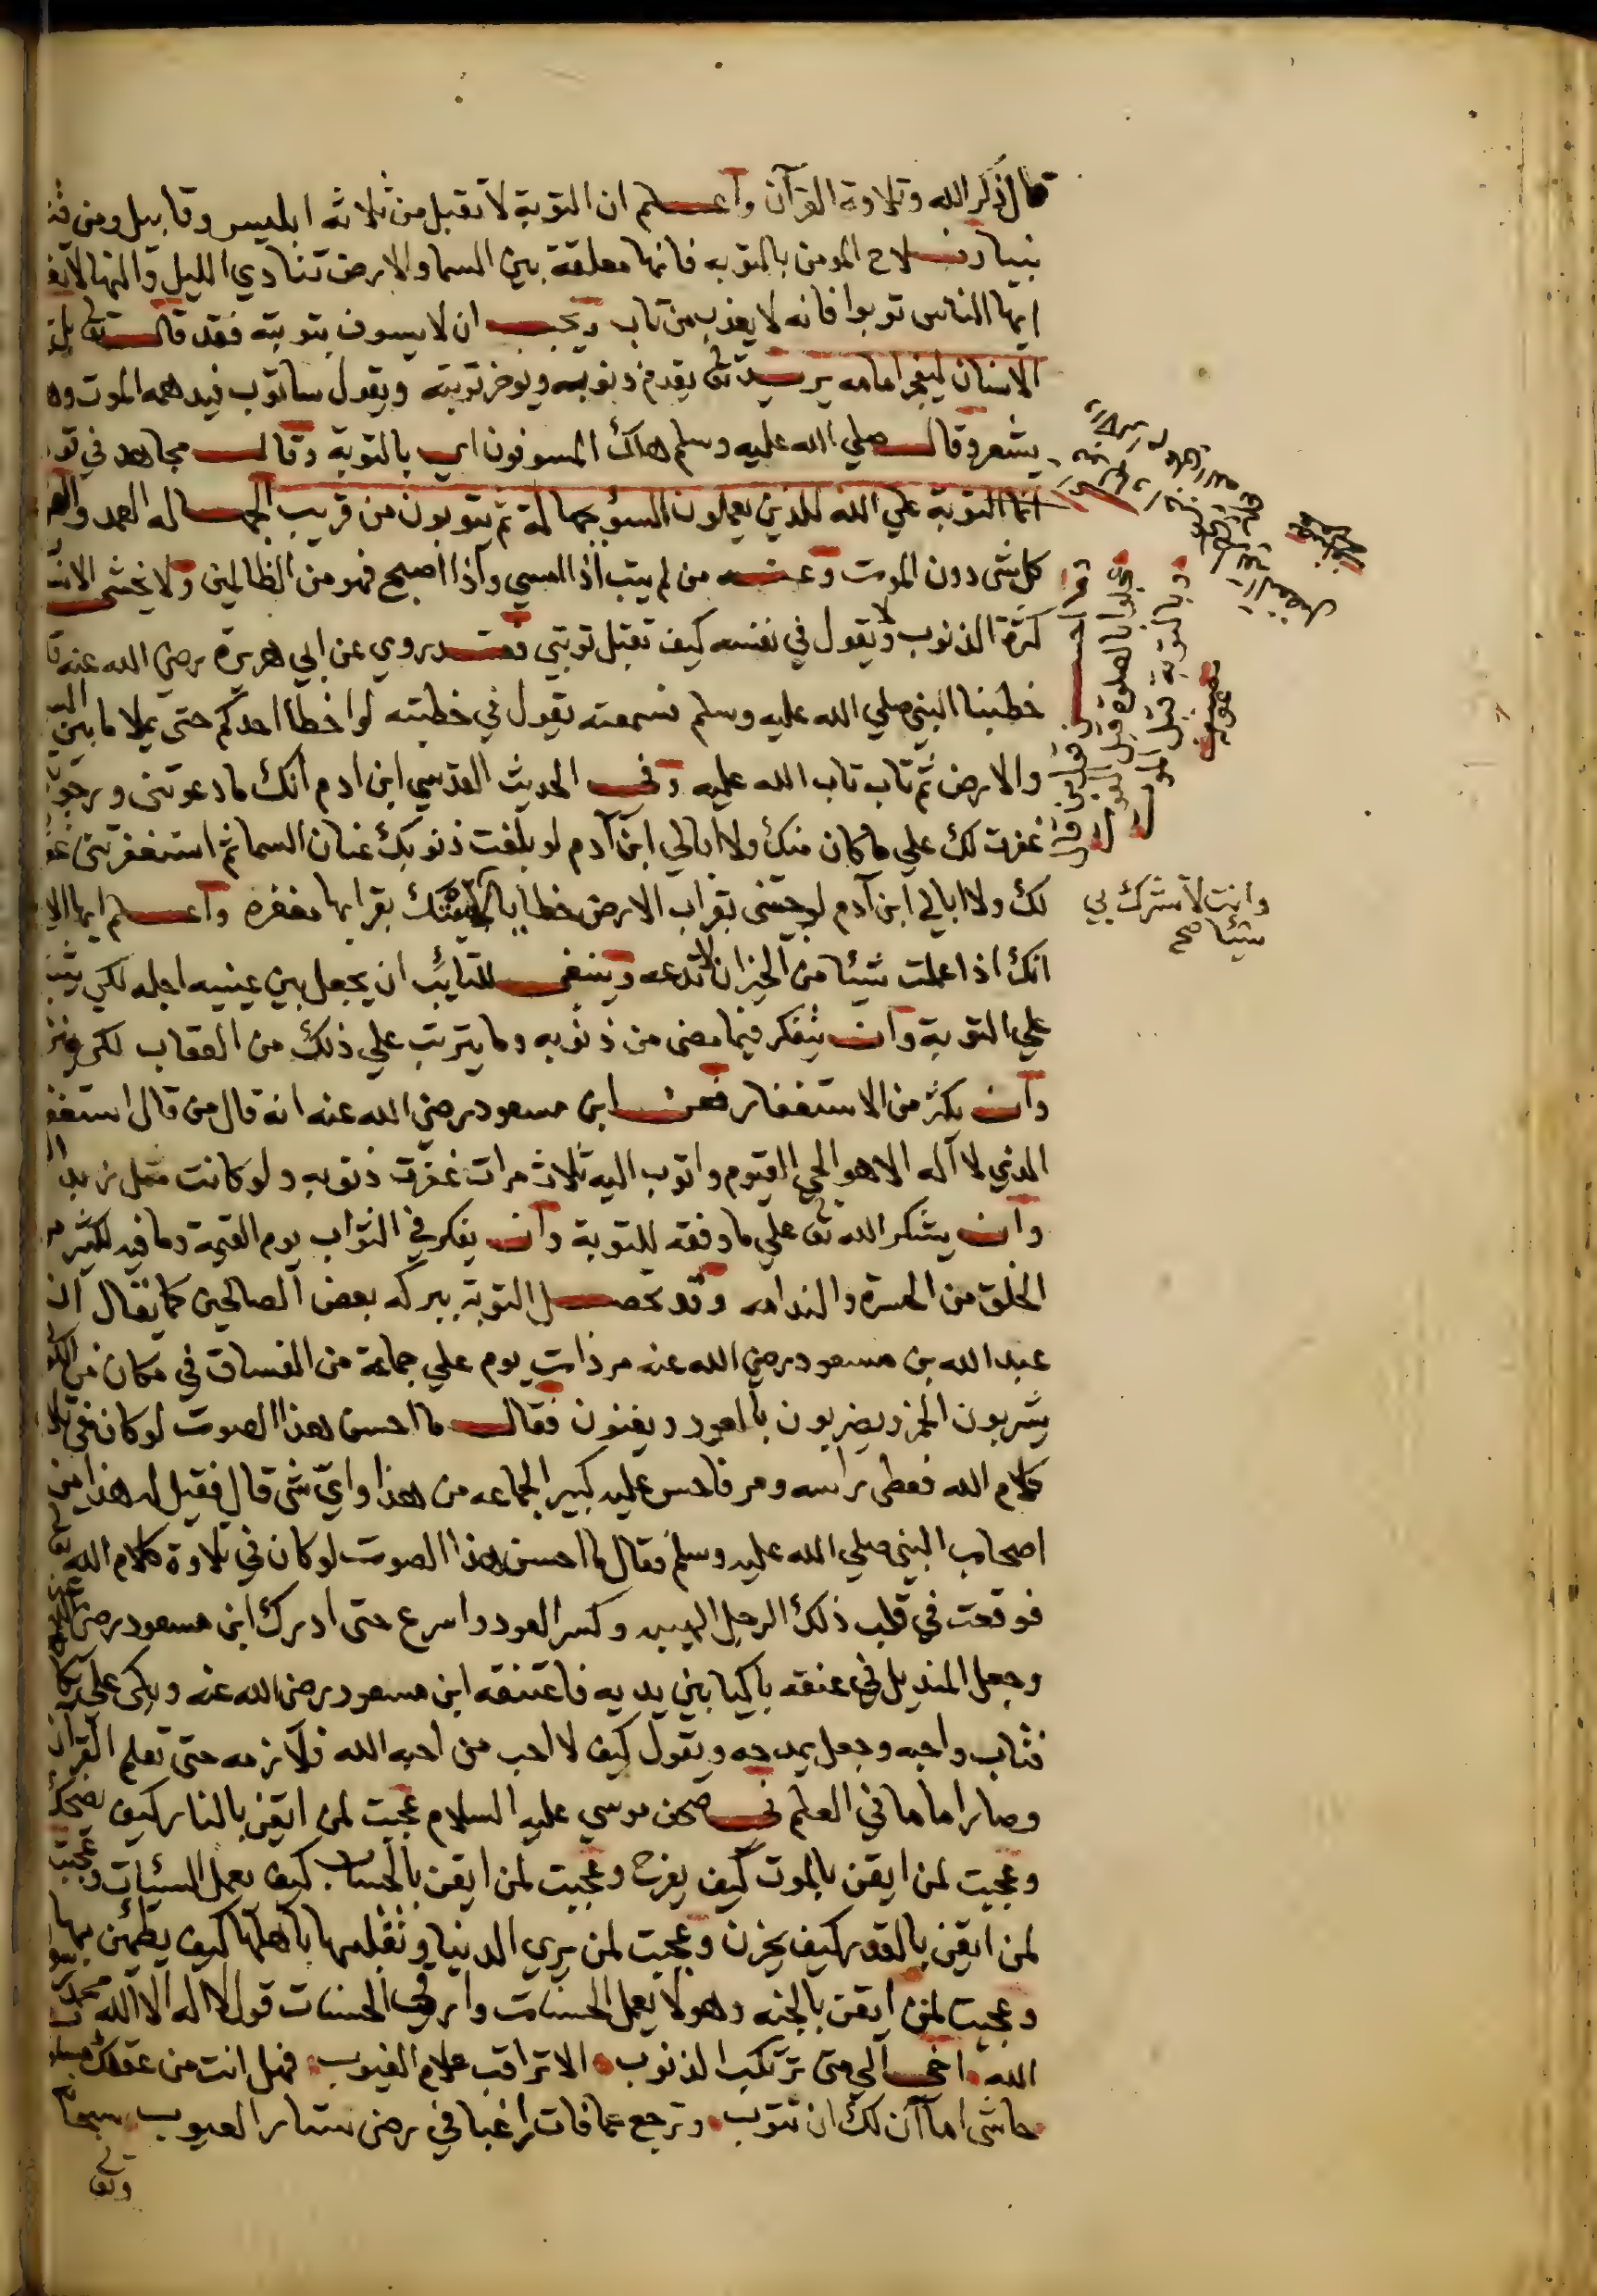 قال ذكر الله وتلاوة القرآن واعلم ان التوبة لا تقبل من ثلاثة ابليس وقابيل ومن قتل
نبيا وسلاح المومن بالتوبه فانها معلقة بين السما والارض تنادي الليل والنهار
ايها الناس توبوا فانه لا يعذب من تاب ويجب ان لا يسوف بتوبته فقد قال تعالى بل
الانسان ليفجر امامه يريد تعالى يقدم ذنوبه ويوخر توبته ويقول ساتوب فيدهمه الموت
يشعر وقال صلي الله عليه وسلم هلك المسوفون اي بالتوبة وقال مجاهد في
انما التوبة علي الله للذين يعملون السوٴ بجهالة ثم يتوبون من قريب الجهاله العمد
كل شى دون الموت وعنه من لم يتب اذا امسي واذا اصبح فهو من الظالمين ولا يخشى
كثرة الذنوب ولا يقول في نفسه كيف تقبل توبتي فقد روي عن ابي هريرة رضي الله عنه
خطبنا النبي صلي الله عليه وسلم فسمعته يقول في خطبته لو اخطا احدكم حتى يملا ما بين
والارض ثم تاب تاب الله عليه وفي الحديث القدسي ابن ادم انك ما دعوتني ورجوتني
غفرت لك علي ما كان منك ولا ابالي ابن آدم لو بلغت ذنوبك عنان السما ثم استغفرتني
لك ولا ابالي ابن آدم لو جيتنى بقراب الارض خطايا لاتيتك بقرابها مغفره واعلم ايها
انك اذا عملت شيئا من الخير ان لا تدعه وينبغى للتايب ان يجعل بين عينيه اجله لكي
علي التوبة وان يتفكر فيما مضى من ذنوبه وما يترتب علي ذلك من العقاب لكي
وان يكثر من الاستغفار فعن ابن مسعود رضي الله عنه انه قال من قال استغفر
الذي لا آله الا هو الحي القيوم واتوب اليه ثلاث مرات غفرت ذنوبه ولو كانت مثل زبد
وان يشكر الله تعالى علي ما وفقه للتوبة وان يفكر في الثواب يوم القيمة وما فيه لكثير
الخلق من الحسرة والندامه وقد تحصل التوبة ببركه بعض الصالحين كما يقال ان
عبد الله بن مسعود رضي الله عنه مر ذات يوم علي جماعة من الفساق في مكان من
يشربون الخمر ويضربون بالعود ويغنون فقال ما احسن هذا الصوت لو كان في
كلام الله فغطى راسه ومر فاحس عليه كبير الجماعه من هذا واي شى قال فقيل له هذا من
اصحاب النبي صلي الله عليه وسلم فقال ما احسن هذا الصوت لو كان في تلاوة كلام الله
فوقعت في قلب ذلك الرجل الهيبه وكسر العود واسرع حتى ادرك ابن مسعود رضي
وجعل المنديل في عنقه باكيا بين يديه فاعتنقه ابن مسعود رضي الله عنه وبكى
فتاب واحبه وجعل يمدحه ويقول كيف لا احب من احبه الله فلازمه حتى تعلم القرآن
وصار اماما في العلم في صحف موسي عليه السلام عجبت لمن ايقن بالنار كيف يضحك
وعجبت لمن ايقن بالموت كيف يفرح وعجبت لمن ايقن بالحساب كيف يعمل السيئات وعجبت
لمن ايقن بالقدر كيف يحزن وعجبت لمن يري الدنيا وتقلبها باهلها كيف يطمئن بها
وعجبت لمن ايقن بالجنه وهو لا يعمل الحسنات وارجى الحسنات قول لا اله الا الله محمد
الله اخي الي متى ترتكب الذنوب الا تراقب علام الغيوب فهل انت من عقلك
حاشى اما آن لك ان تتوب وترجع عما فات راغبا في رضى ستار العيوب سبحانه
وتعالى
وانت لا تشرك بي
شيئا صح